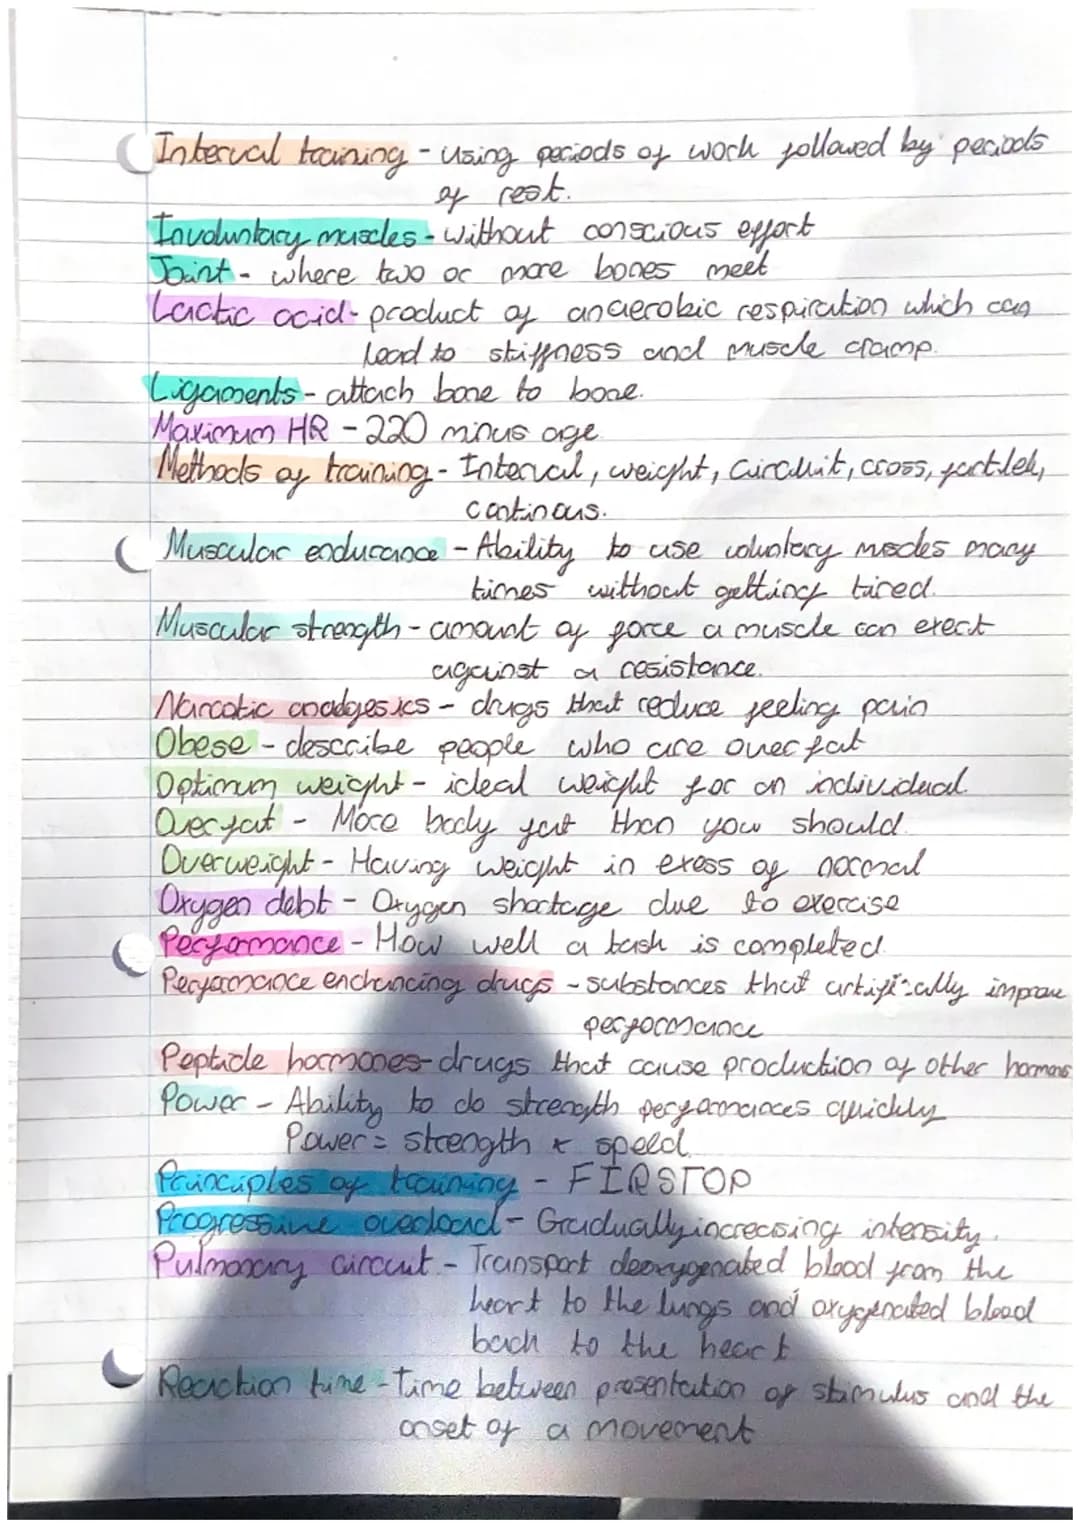 Interval training - using periods of work followed by periods
of rest.
Involuntary muscles - without conscious effort
Joint - where two or more bones meet
Lactic acid - product of anaerobic respiration which can
lead to stiffness and muscle cramp.
Ligaments - attach bone to bone.
Maximum HR - 220 minus age
Methods of training - Interval, weight, circuit, cross, fartlek,
continous.
Muscular endurance - Ability to use voluntary muscles many
times without getting tired.
Muscular strength - amount of force a muscle can exert
against a resistance.
Narcotic analgesics - drugs that reduce feeling pain
Obese - describe people who are over fat
Optimum weight - ideal weight for an individual.
Overfat - More body fat than you should.
Overweight - Having weight in exess of normal
Oxygen debt - Oxygen shortage due to exercise
Performance - How well a task is completed.
Performance enchancing drugs - substances that artifically improve
performance
Peptide hormones - drugs that cause production of other hormones
Power - Ability to do strength performances quickly
Power = strength x speed.
Principles of training - FIRSTOP
Progressive overload - Gradually increasing intensity.
Pulmonary circuit - Transport deoxygenated blood from the
heart to the lungs and oxygenated blood
back to the heart
Reaction time - Time between presentation of stimulus and the
onset of a movement